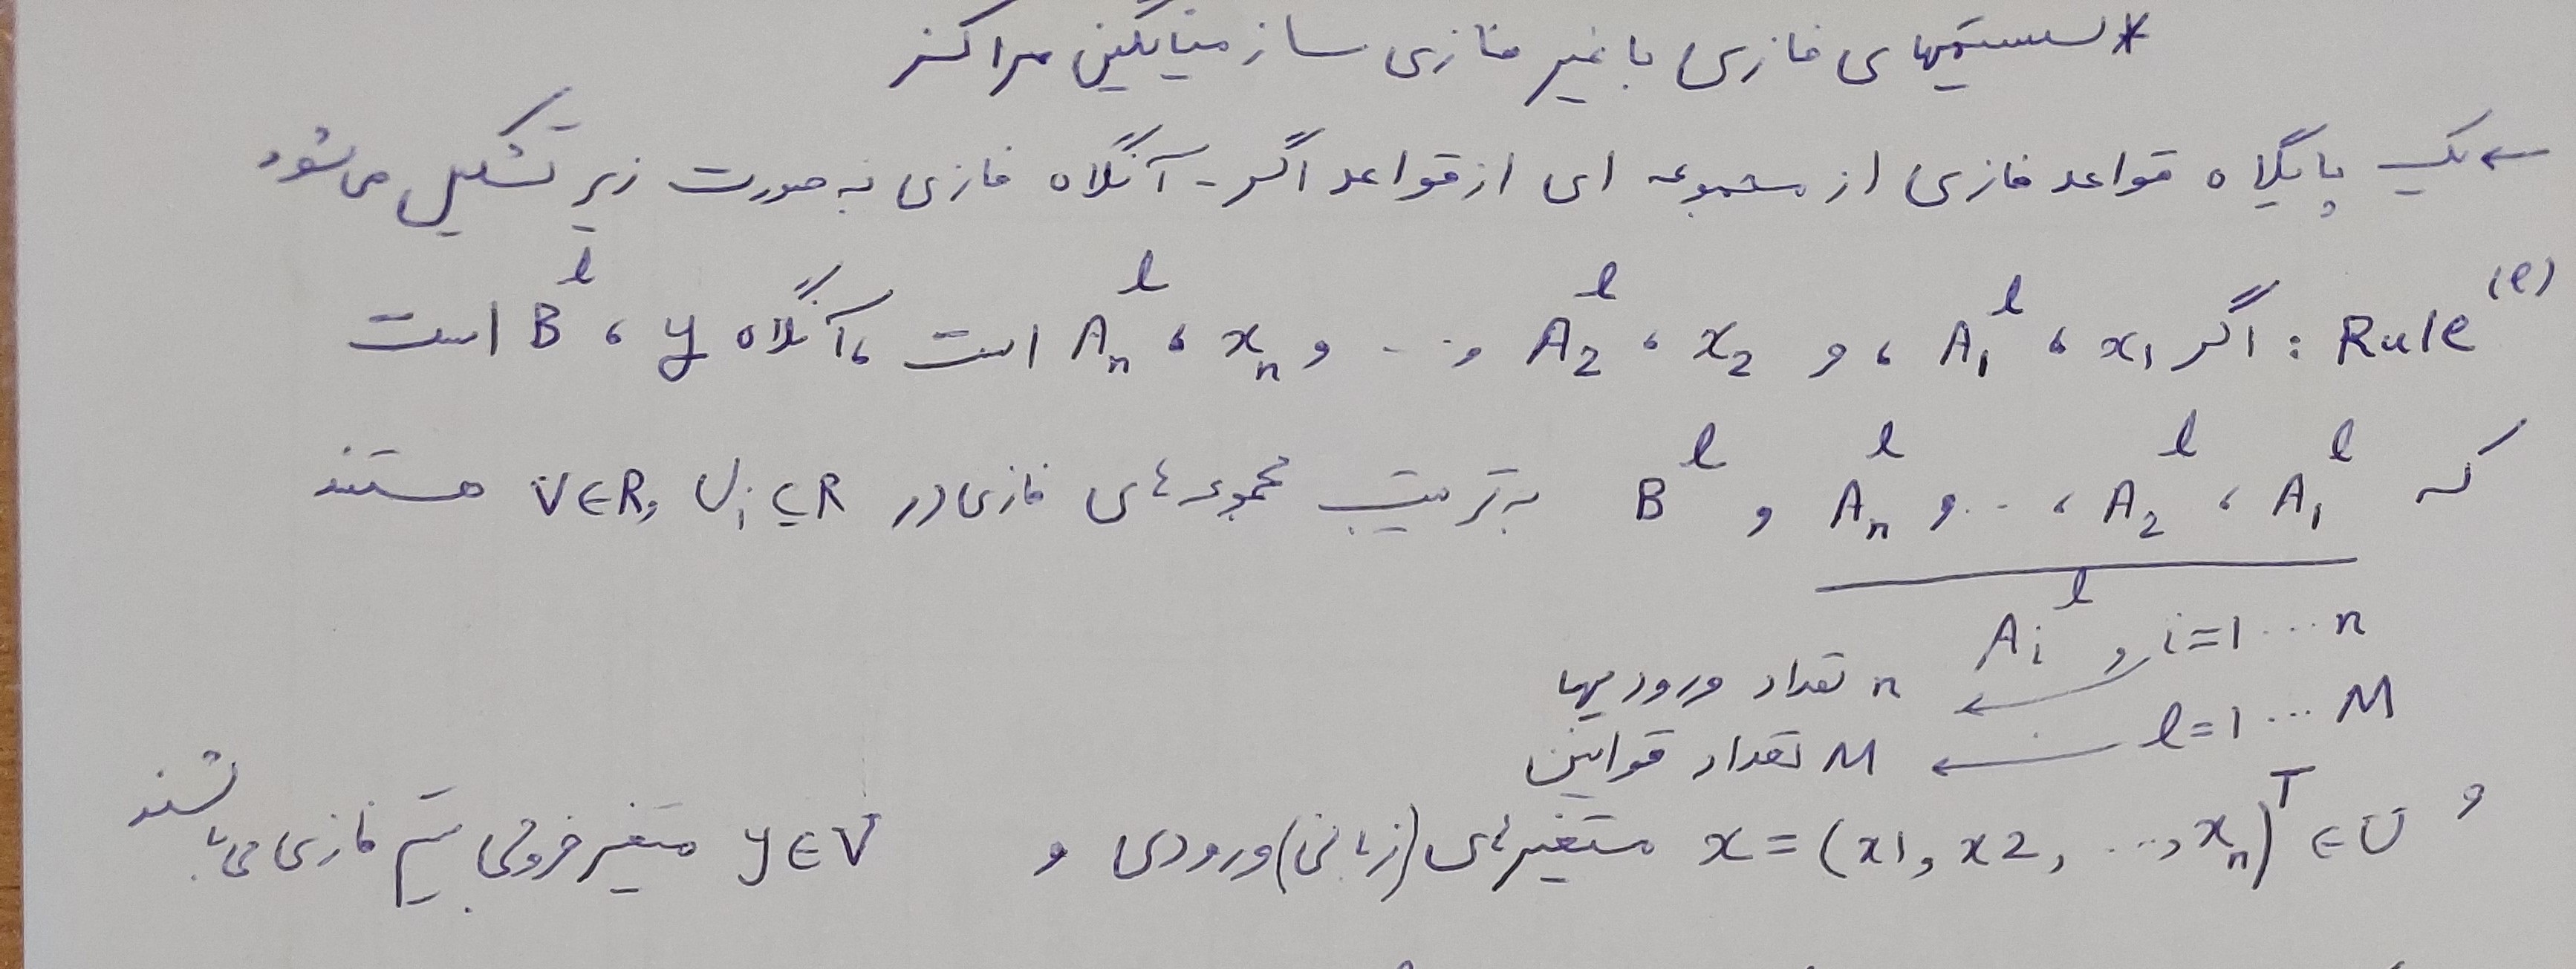 * سیستمهای فازی با غیر فازی ساز میانگین مراکز
← یک پایگاه قواعد فازی از مجموعه ای از قواعد اگر - آنگاه فازی به صورت زیر تشکیل می شود
Rule⁽ˡ⁾ : اگر x₁ ، A₁ˡ ، و x₂ ، A₂ˡ و ... و xₙ ، Aₙˡ است ، آنگاه y ، Bˡ است
که A₁ˡ ، A₂ˡ ، ... و Aₙˡ و Bˡ به ترتیب مجموعه های فازی در Uᵢ ⊆ R و V ∈ R هستند
Aᵢˡ , i=1 ... n ← n تعداد ورودیها
l=1 ... M ← M تعداد قوانین
و x = (x1, x2, ..., xₙ)ᵀ ∈ U متغیرهای (زبانی) ورودی و y ∈ V متغیر خروجی سیستم فازی می باشند